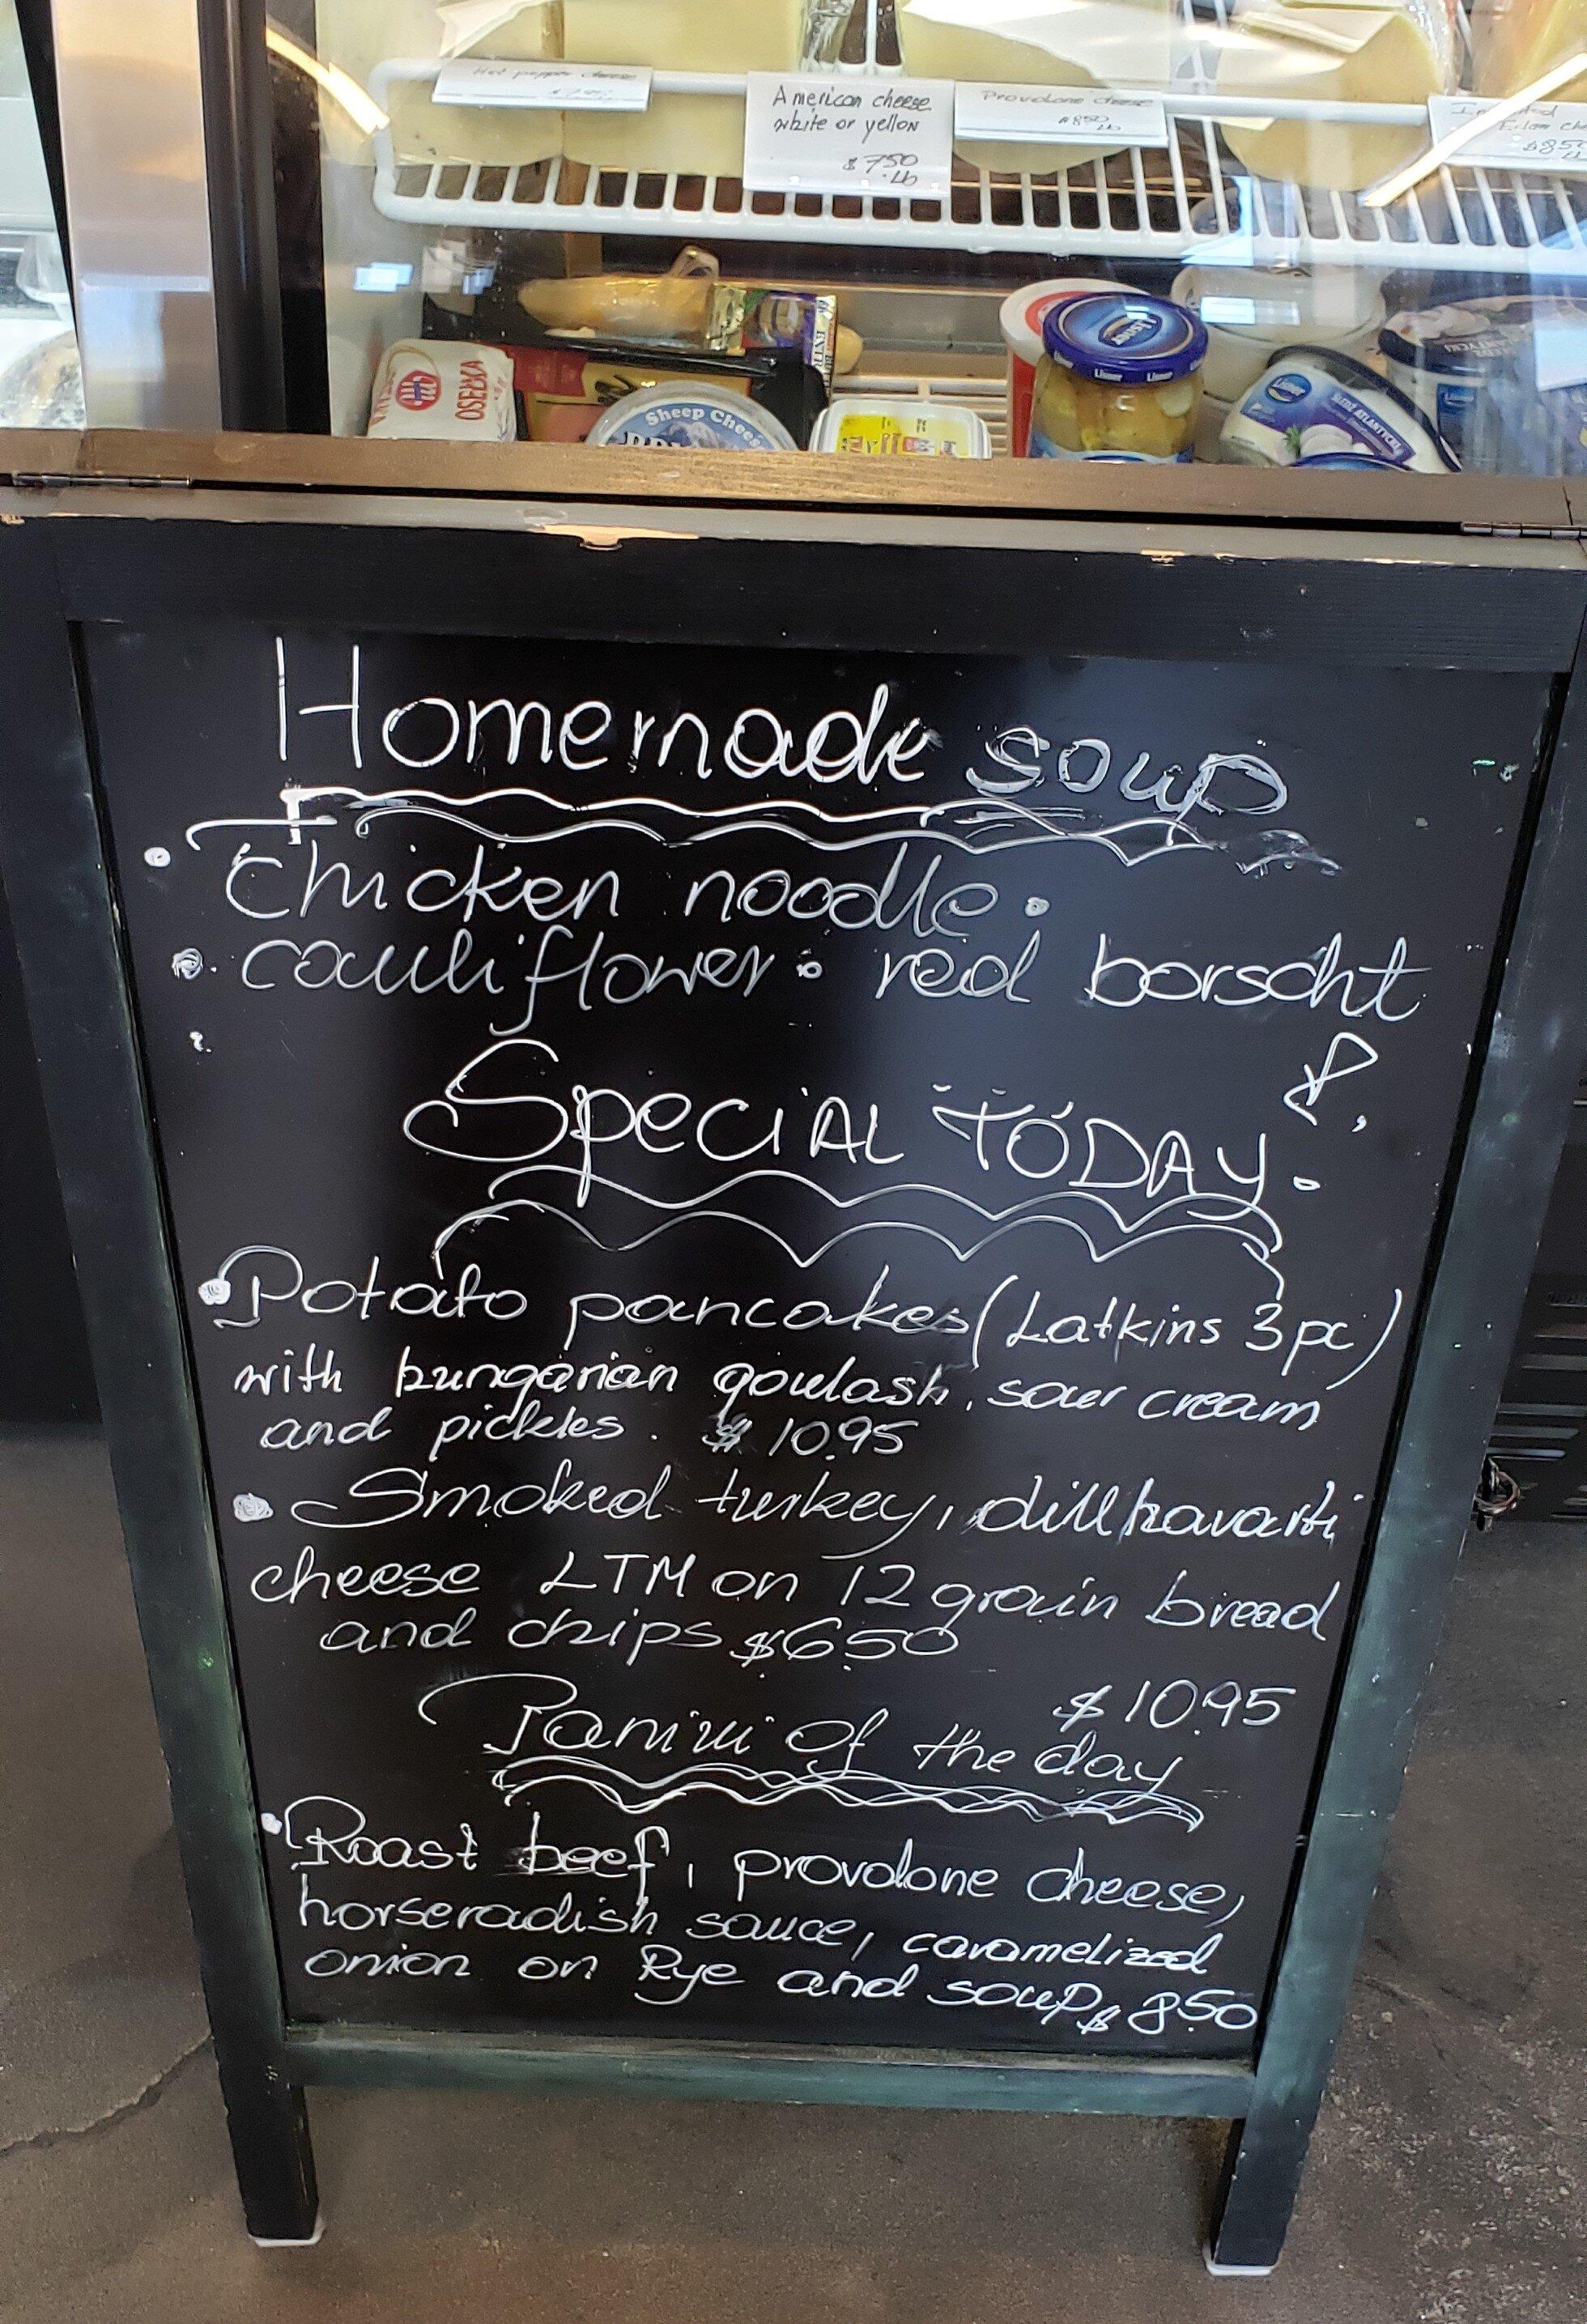 Hot pepper cheese
American cheese
white or yellow
$7.50
.Lb
Provolone cheese
$8.50
Lb
$8.50
OSEŁKA
Sheep Cheese
Lisner
Lisner
Lisner
Lisner
ŚLEDŹ ATLANTYCKI
Homemade soup
• Chicken noodle •
• cauliflower • red borscht
Special TODAY.
• Potato pancakes (Latkins 3pc)
with hungarian goulash, sour cream
and pickles. $10.95
• Smoked turkey, dill havarti
cheese LTM on 12 grain bread
and chips $6.50
$10.95
Panini of the day
• Roast beef, provolone cheese,
horseradish sauce, caramelized
onion on Rye and soup $8.50